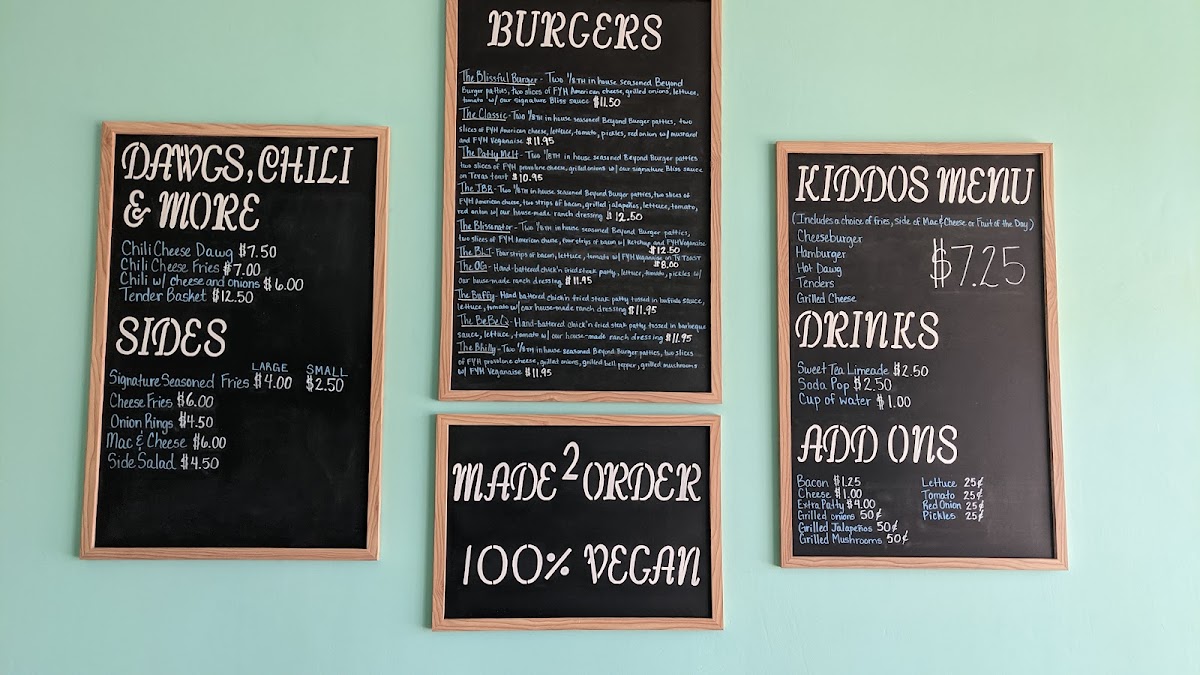 DAWGS, CHILI
& MORE
Chili Cheese Dawg $7.50
Chili Cheese Fries $7.00
Chili w/ cheese and onions $6.00
Tender Basket $12.50
SIDES
LARGE SMALL
Signature Seasoned Fries $4.00 $2.50
Cheese Fries $6.00
Onion Rings $4.50
Mac & Cheese $6.00
Side Salad $4.50
BURGERS
The Blissful Burger - Two 1/8TH in house seasoned Beyond
Burger patties, two slices of FYH American cheese, grilled onions, lettuce,
tomato w/ our signature Bliss sauce $11.50
The Classic - Two 1/8th in house seasoned Beyond Burger patties, two
slices of FYH American cheese, lettuce, tomato, pickles, red onion w/ mustard
and FYH Veganaise $11.95
The Patty Melt - Two 1/8TH in house seasoned Beyond Burger patties
two slices of FYH provolone cheese, grilled onions w/ our signature Bliss sauce
on Texas toast $10.95
The JBR - Two 1/8th in house seasoned Beyond Burger Patties, two slices of
FYH American cheese, two strips of bacon, grilled jalapeños, lettuce, tomato,
red onion w/ our house-made ranch dressing $12.50
The Blissenator - Two 1/8th in house seasoned Beyond Burger Patties,
two slices of FYH American cheese, four strips of bacon w/ Ketchup and FYH Veganaise
$12.50
The BLT - Four strips of bacon, lettuce, tomato w/ FYH Veganaise on TX TOAST
$8.00
The OG - Hand-battered chick'n fried steak patty, lettuce, tomato, pickles w/
our house-made ranch dressing $11.95
The Buffy - Hand battered chick'n fried steak patty tossed in buffalo sauce,
lettuce, tomato w/ our house-made ranch dressing $11.95
The BeBeQ - Hand-battered chick'n fried steak patty tossed in barbeque
sauce, lettuce, tomato w/ our house-made ranch dressing $11.95
The Bhilly - Two 1/8TH in house seasoned Beyond Burger patties, two slices
of FYH provolone cheese, grilled onions, grilled bell pepper, grilled mushrooms
w/ FYH Veganaise $11.95
MADE 2 ORDER
100% VEGAN
KIDDOS MENU
(Includes a choice of fries, side of Mac & Cheese or Fruit of the Day)
Cheeseburger
Hamburger
$7.25
Hot Dawg
Tenders
Grilled Cheese
DRINKS
Sweet Tea Limeade $2.50
Soda Pop $2.50
Cup of Water $1.00
ADD ONS
Bacon $1.25
Cheese $1.00
Extra Patty $4.00
Grilled onions 50¢
Grilled Jalapeños 50¢
Grilled Mushrooms 50¢
Lettuce 25¢
Tomato 25¢
Red Onion 25¢
Pickles 25¢